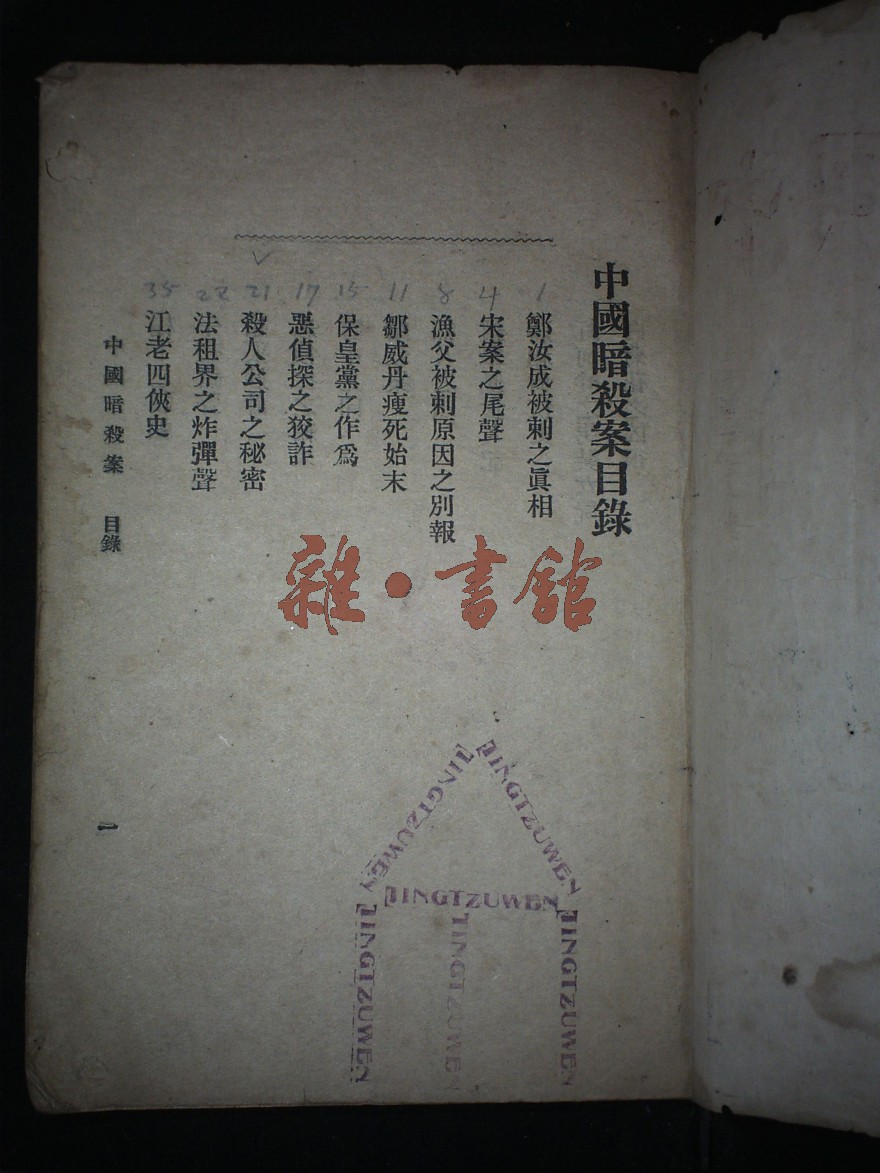 中國暗殺案目錄
1 鄭汝成被刺之眞相
4 宋案之尾聲
8 漁父被刺原因之別報
11 鄒威丹瘦死始末
15 保皇黨之作爲
17 惡偵探之狡詐
21 殺人公司之秘密
22 法租界之炸彈聲
35 江老四俠史
中國暗殺案 目錄
一
雜·書館
JINGTZUWEN
JINGTZUWEN
JINGTZUWEN
JINGTZUWEN
JINGTZUWEN
JINGTZUWEN